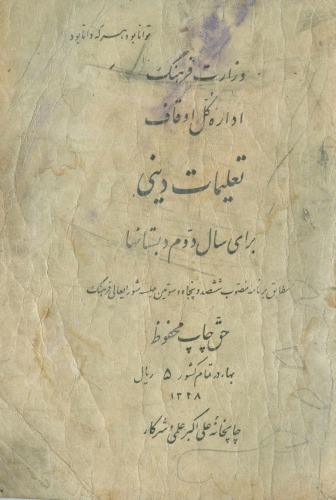 توانا بود هر که دانا بود
وزارت فرهنگ
اداره کل اوقاف
تعلیمات دینی
برای سال دوم دبستانها
مطابق برنامه مصوب ششصد و پنجاه و سومین جلسه شورایعالی فرهنگ
حق چاپ محفوظ
بهاء در تمام کشور ۵ ریال
۱۳۲۸
چاپخانهٔ علی اکبر علمی و شرکاء